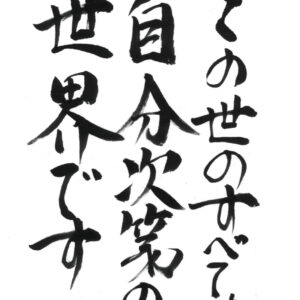 この世のすべて
自分次第の
世界です